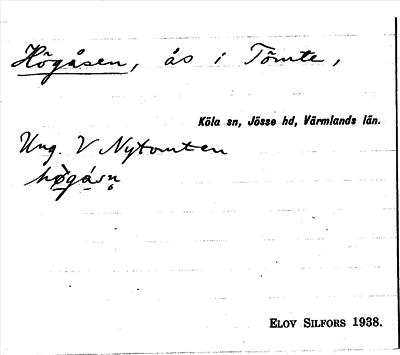 Högåsen, ås i Tömte,
Köla sn, Jösse hd, Värmlands län.
Ung. V Nytomten
ELOV SILFORS 1938.